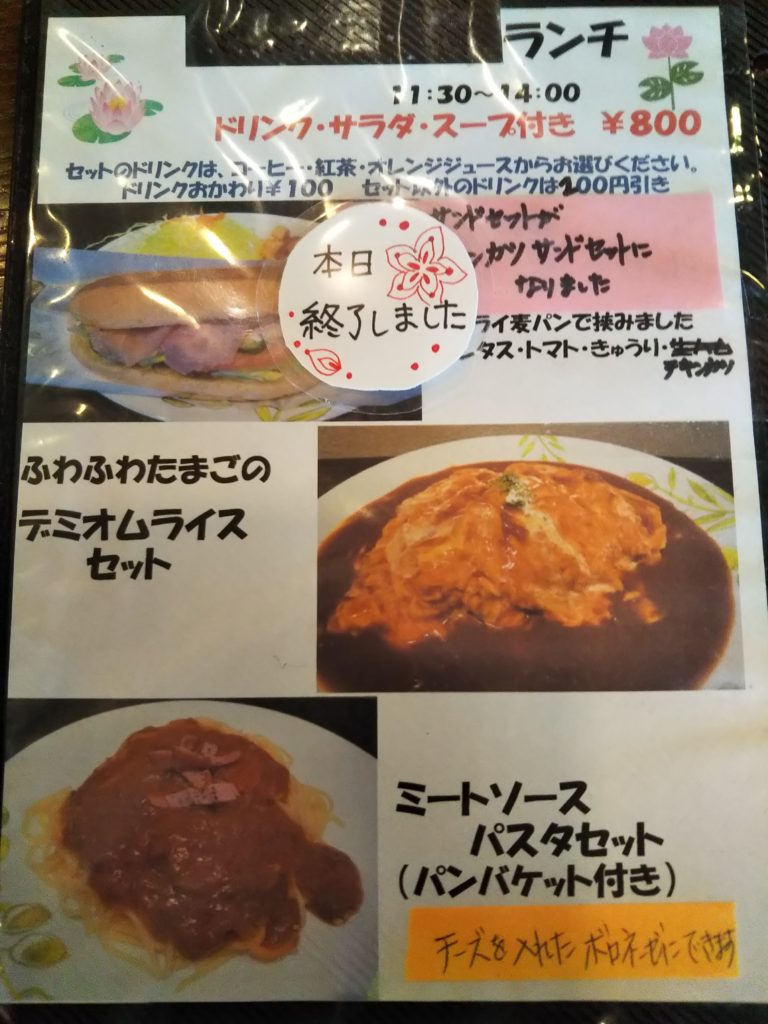 ランチ
11:30～14:00
ドリンク・サラダ・スープ付き ￥800
セットのドリンクは、コーヒー・紅茶・オレンジジュースからお選びください。
ドリンクおかわり￥100 セット以外のドリンクは200円引き
サンドセットが
ンカツ サンドセットに
なりました
本日
終了しました
ライ麦パンで挟みました
タス・トマト・きゅうり・
チキンカツ
ふわふわたまごの
デミオムライス
セット
ミートソース
パスタセット
（パンバケット付き）
チーズを入れた ボロネーゼにできます